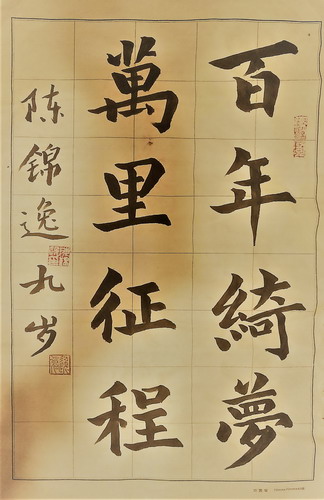 百年綺夢
萬里征程
陈錦逸九岁